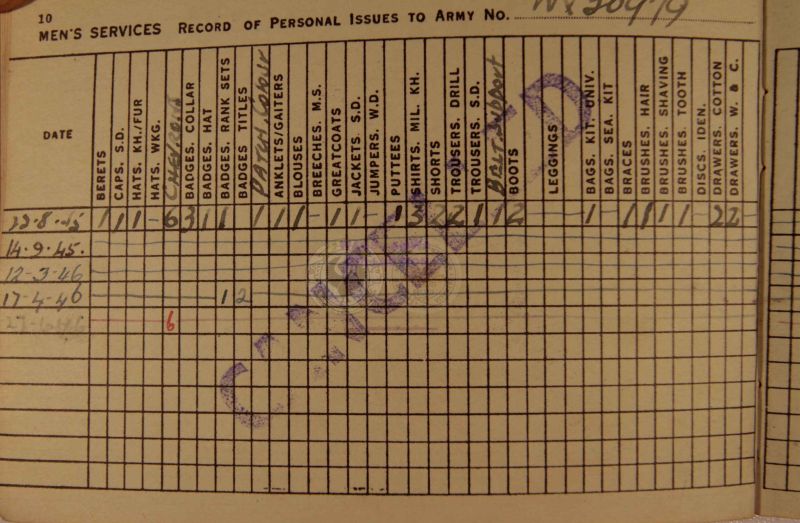 10
MEN'S SERVICES RECORD OF PERSONAL ISSUES TO ARMY NO.
DATE
BERETS
CAPS. S.D.
HATS. KH./FUR
HATS. WKG.
BADGES. COLLAR
BADGES. HAT
BADGES. RANK SETS
BADGES TITLES
PATCH COLOUR
ANKLETS/GAITERS
BLOUSES
BREECHES. M.S.
GREATCOATS
JACKETS. S.D.
JUMPERS. W.D.
PUTTEES
SHIRTS. MIL. KH.
SHORTS
TROUSERS. DRILL
TROUSERS. S.D.
BELT SUPPORT
BOOTS
LEGGINGS
BAGS. KIT. UNIV.
BAGS. SEA. KIT
BRACES
BRUSHES. HAIR
BRUSHES. SHAVING
BRUSHES. TOOTH
DISCS. IDEN.
DRAWERS. COTTON
DRAWERS. W. & C.
22-8-45 1 1 1 - 6 3 1 1 1 1 1 - 1 1 - 1 3 2 2 1 1 2 1 - 1 1 1 1 - 2 2
14.9.45.
12-3-46
17-4-46 1 2
6
CANCELLED